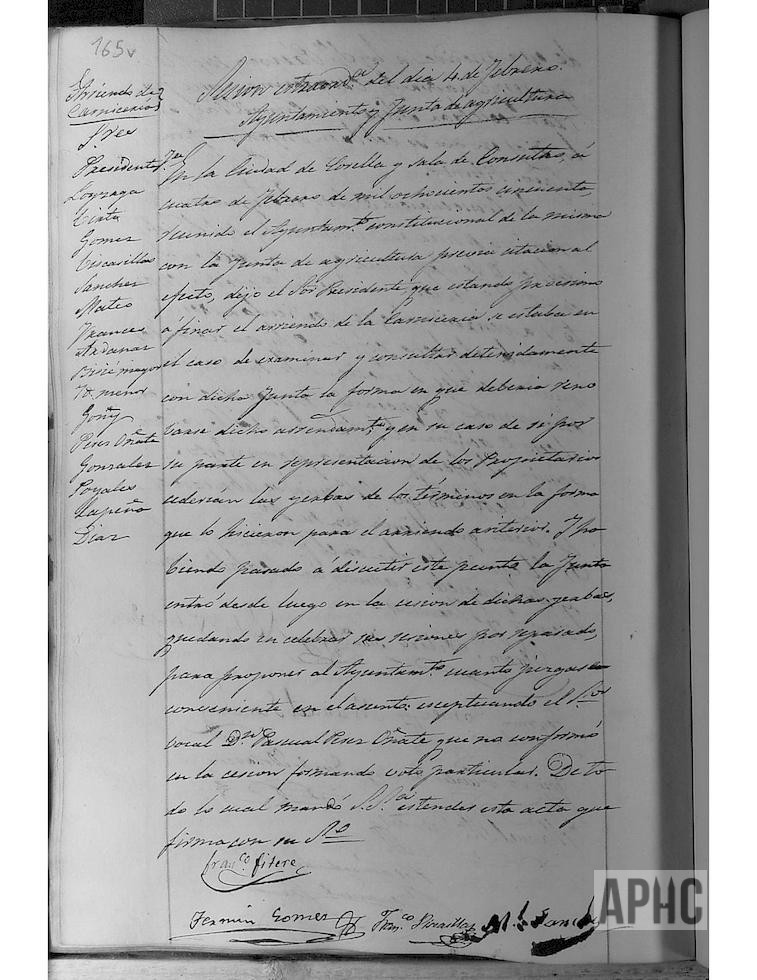 165v
Arriendo de
Carnicerias
S.res
Presidente
Gonzaga
Gomez
Viscasillas
Sanchez
Mateo
Frances
Ardanaz
mayor
Yd. menor
Goñy
Perez Oñate
Gonzalez
Poyales
Lapeña
Diaz
Sesion extraord.a del dia 4 de Febrero.
Ayuntamiento y Junta de agricultura
En la Ciudad de Corella y Sala de Consultas, á
cuatro de febrero de mil ochocientos cincuenta,
reunido el Ayuntam.to constitucional de la misma
con la junta de agricultura previa citacion al
efecto, dijo el Sor Presidente que estando procsimo
á finar el arriendo de la Carniceria se estaba en
el caso de examinar y consultar detenidamente
con dicha Junta la forma en que deberia reno
varse dicho arrendam.to y en su caso de si por
su parte en representacion de los Propietarios
cederian las yerbas de los términos en la forma
que lo hicieron para el arriendo anterior. Y ha
biendo pasado á discutir este punto la Junta
entró desde luego en la cesion de dichas yerbas,
quedando en celebrar sus sesiones por separado,
para proponer al Ayuntam.to cuanto juzgase
conveniente en el asunto: esceptuando el S.or
vocal D.n Pascual Perez Oñate que no conformó
en la cesion formando voto particular. De to
do lo cual mandó S.S.a estender esta acta que
firma con su S.o
fran.co fitere
Fermin Gomez Fran.co M. Sanchez
APHC